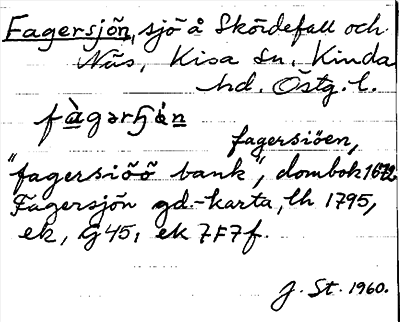 Fagersjön, sjö å Skördefall och
Näs, Kisa sn, Kinda
hd. Östg. l.
fàgərɧö́n
fagersiöen,
"fagersiöö bank", dombok 1672
Fagersjön gd.-karta, lh 1795,
ek, G45, ek 7F7f.
J. St. 1960.